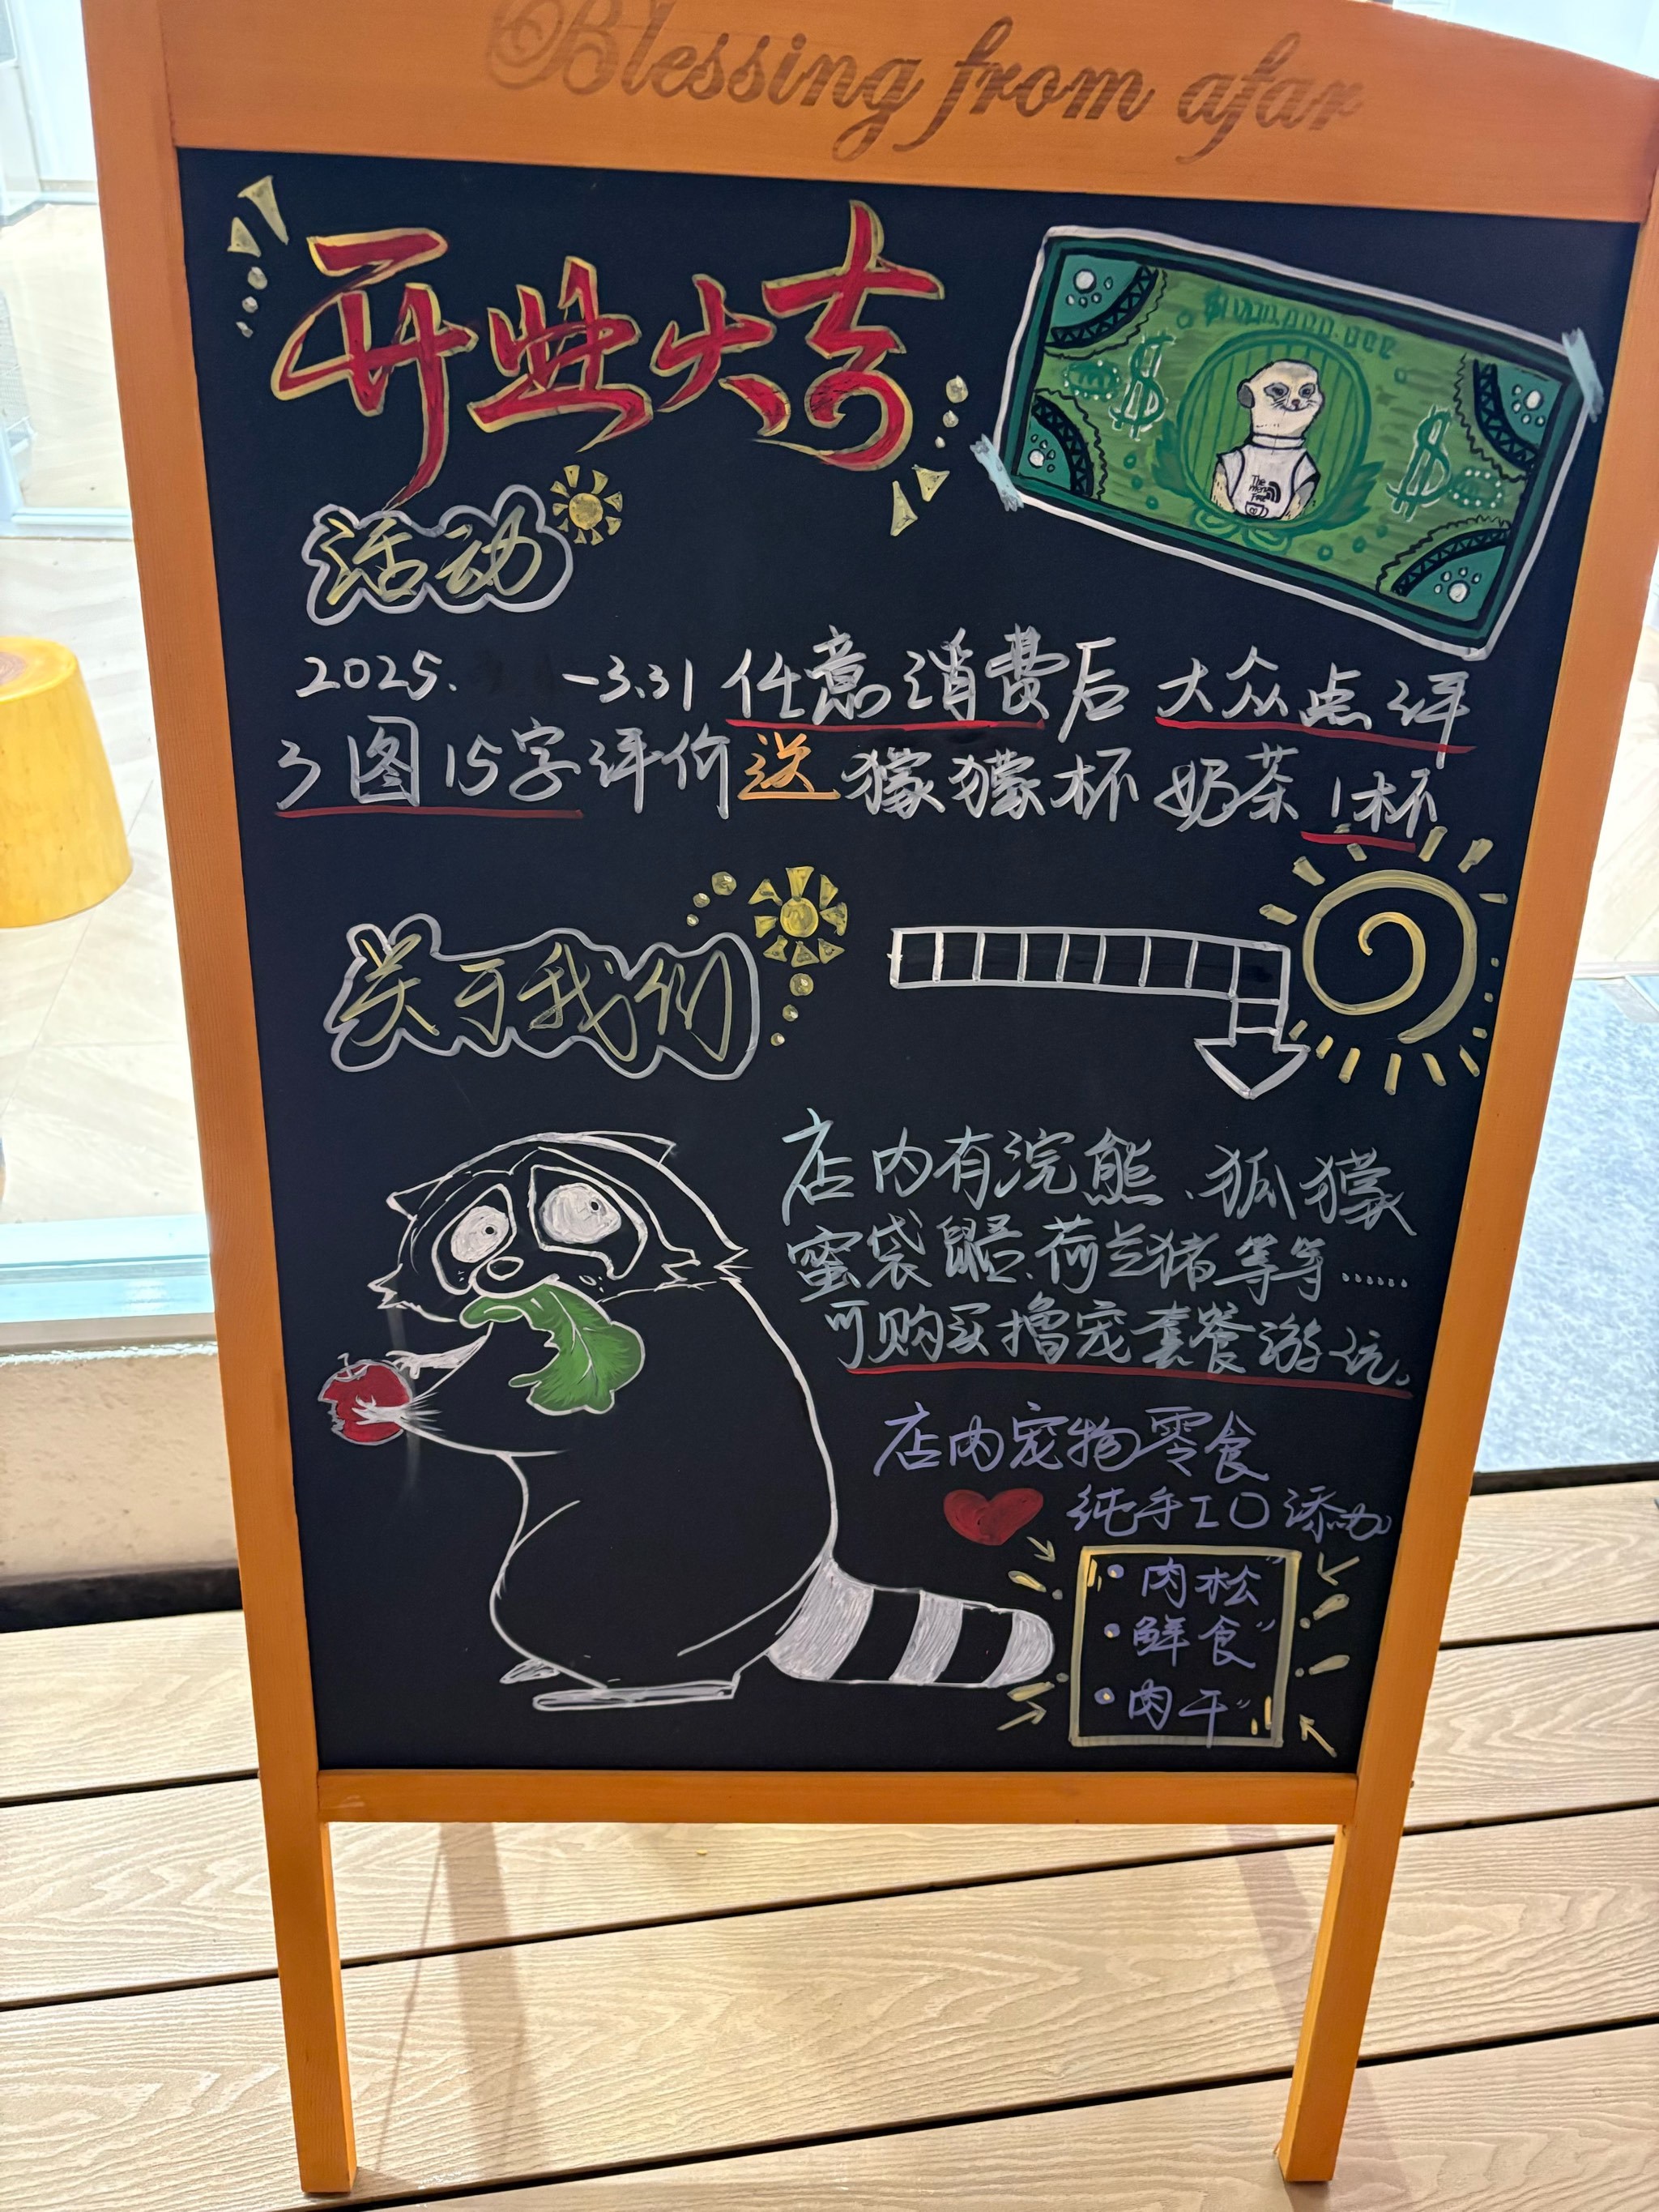 Blessing from afar
开业大吉
活动
2025. -3.31 任意消费后 大众点评
3图15字评价送獴獴杯奶茶1杯
关于我们
店内有浣熊、狐獴
蜜袋鼯、荷兰猪等等……
可购买撸宠套餐游玩。
店内宠物零食
纯手工0添加
·肉松"
·鲜食"
·肉干"